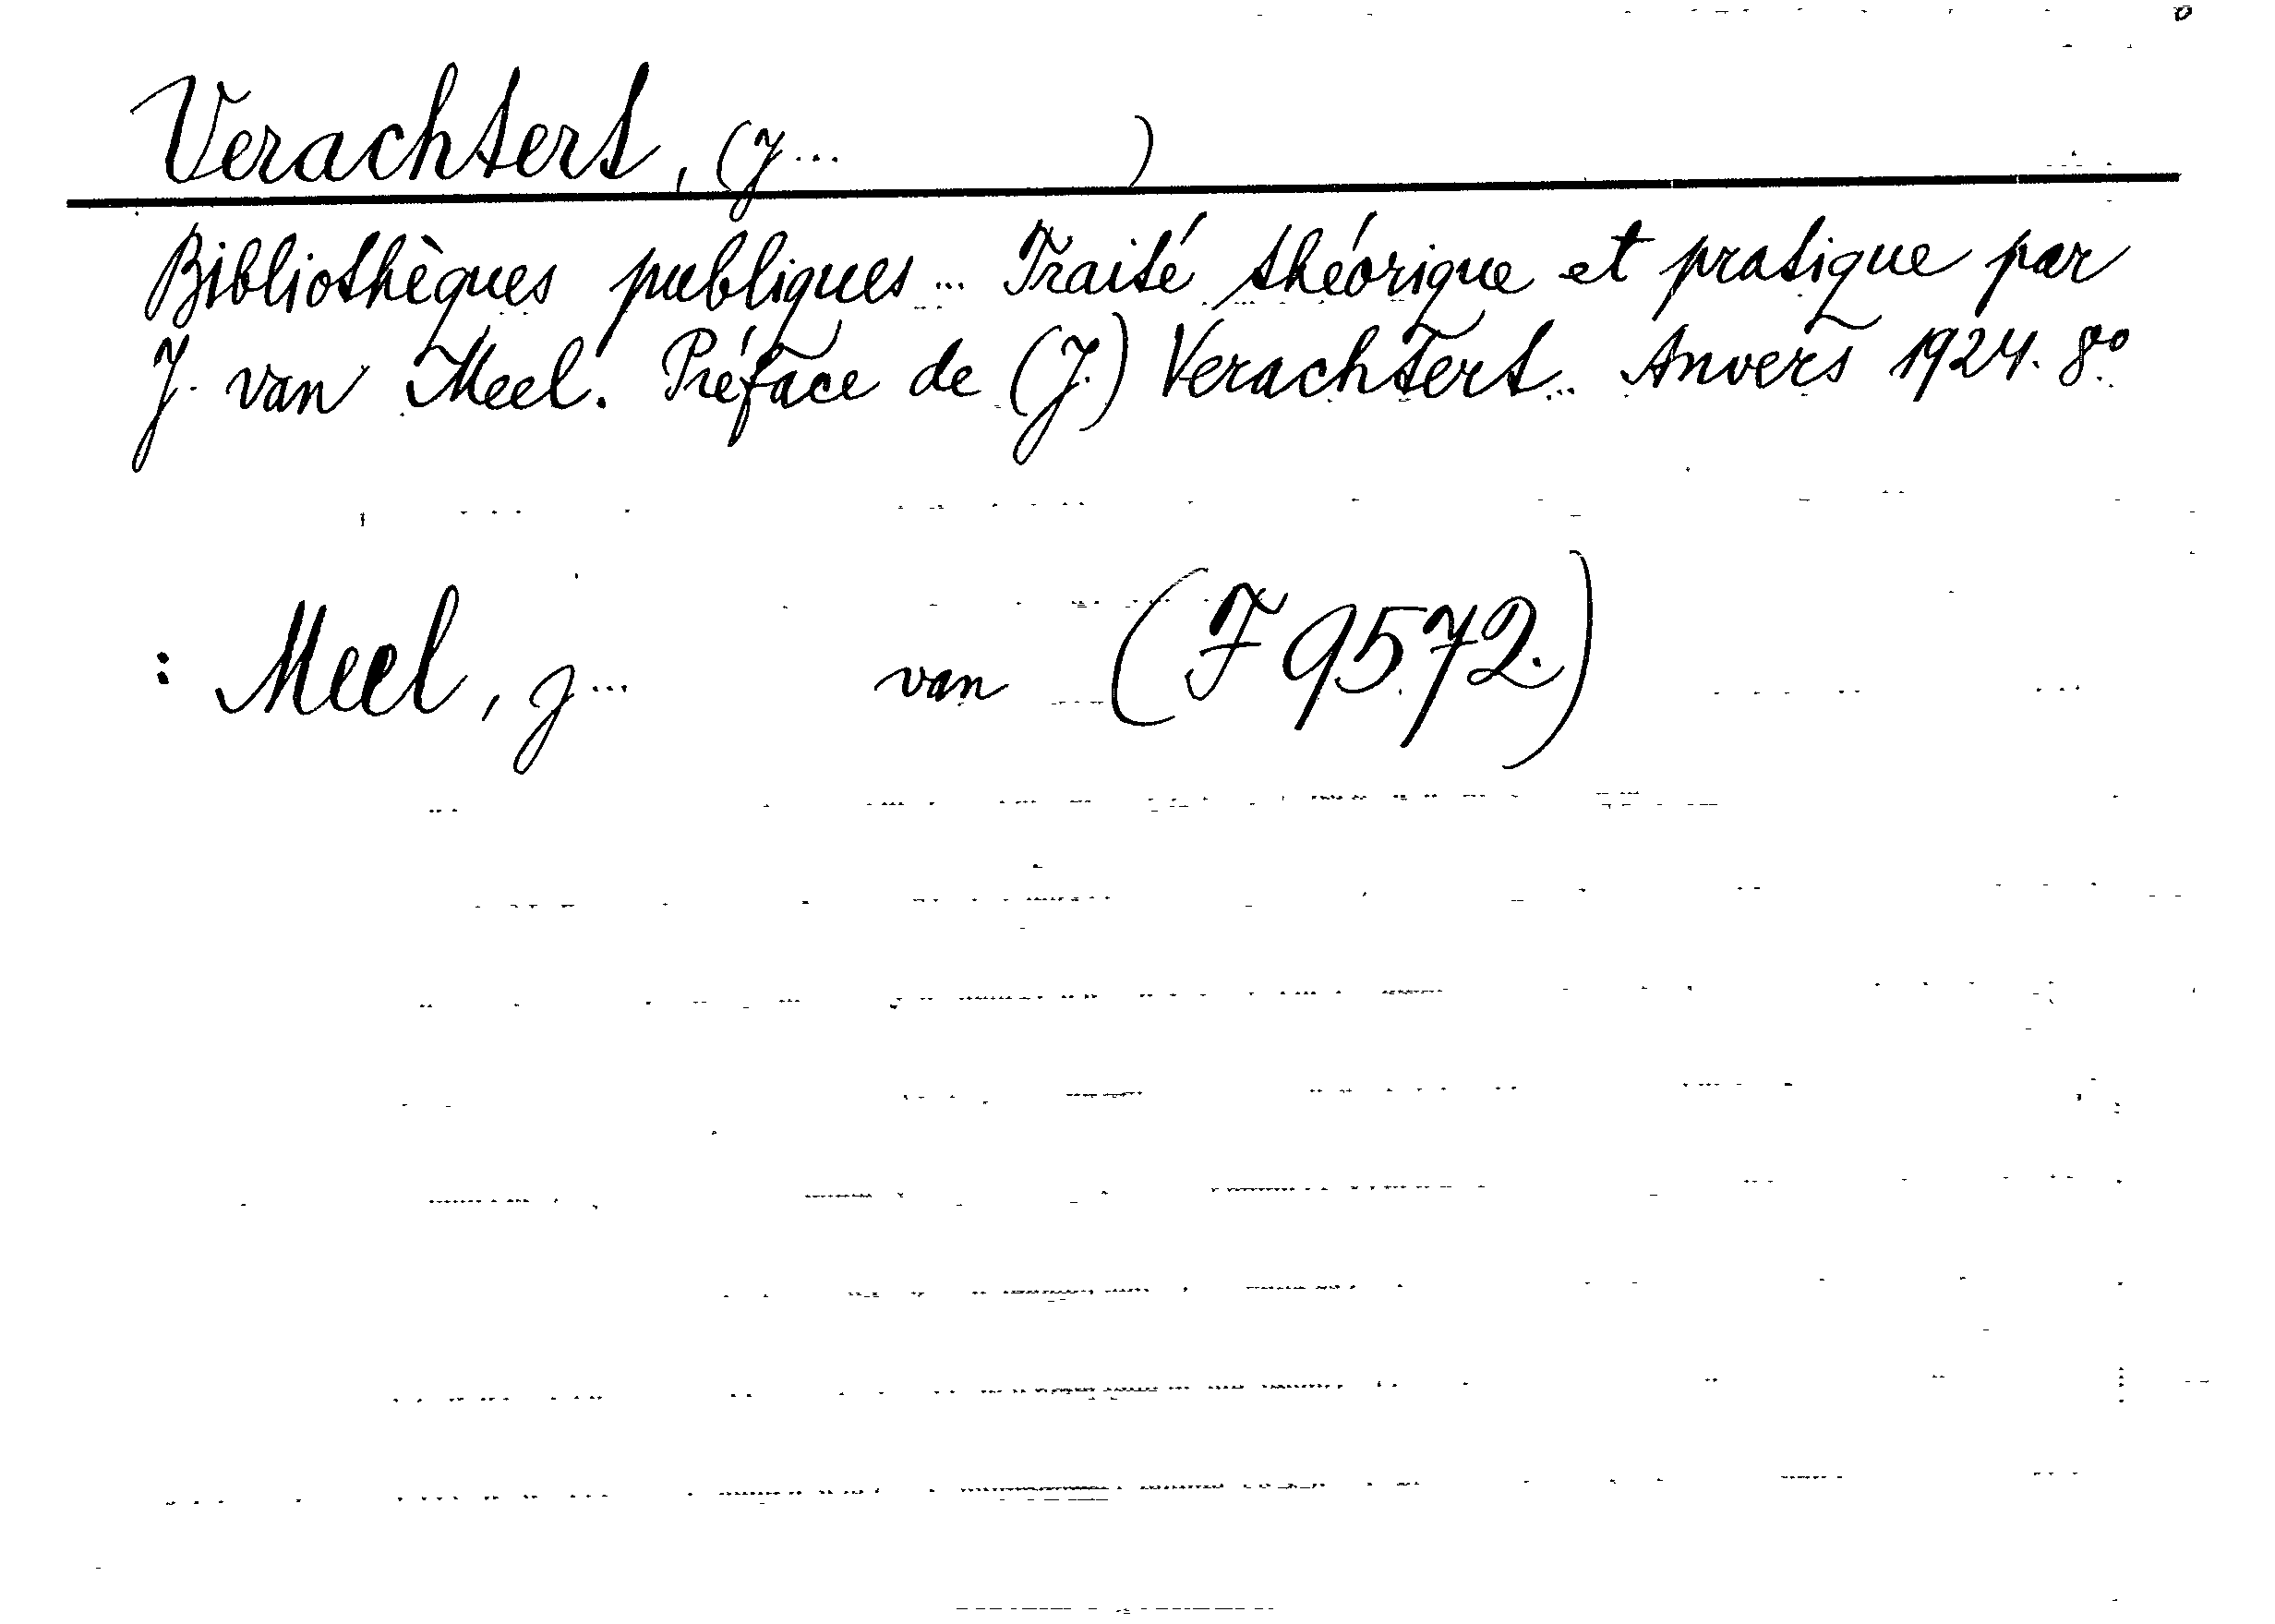 Verachtert, (J... )
Bibliothèques publiques... Traité théorique et pratique par
J. van Meel. Préface de (J.) Verachtert... Anvers 1924. 8°.
: Meel, J... van (F 9572.)